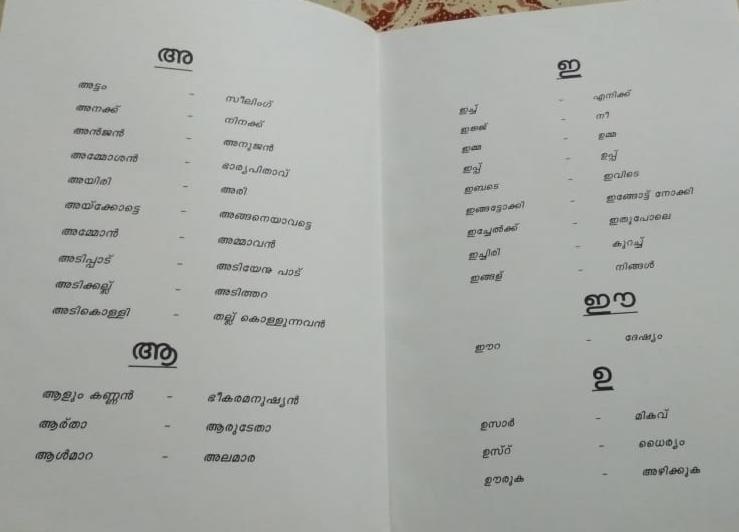 അ
അട്ടം - സീലിംഗ്
അനക്ക് - നിനക്ക്
അൻജൻ - അനുജൻ
അമ്മോശൻ - ഭാര്യപിതാവ്
അയിരി - അരി
അയ്ക്കോട്ടെ - അങ്ങനെയാവട്ടെ
അമ്മോൻ - അമ്മാവൻ
അടിപ്പാട് - അടിയേനു പാട്
അടിക്കല്ല് - അടിത്തറ
അടികൊള്ളി - തല്ല് കൊള്ളുന്നവൻ
ആ
ആളും കണ്ണൻ - ഭീകരമനുഷ്യൻ
ആര്താ - ആരുടേതാ
ആൾമാറ - അലമാര
ഇ
ഇച്ച് - എനിക്ക്
ഇജ്ജ് - നീ
ഇമ്മ - ഉമ്മ
ഇപ്പ് - ഉപ്പ്
ഇബടെ - ഇവിടെ
ഇങ്ങട്ടോക്കി - ഇങ്ങോട്ട് നോക്കി
ഇച്ചേൽക്ക് - ഇതുപോലെ
ഇച്ചിരി - കുറച്ച്
ഇങ്ങള് - നിങ്ങൾ
ഈ
ഈറ - ദേഷ്യം
ഉ
ഉസാർ - മികവ്
ഉസ്റ് - ധൈര്യം
ഊരുക - അഴിക്കുക